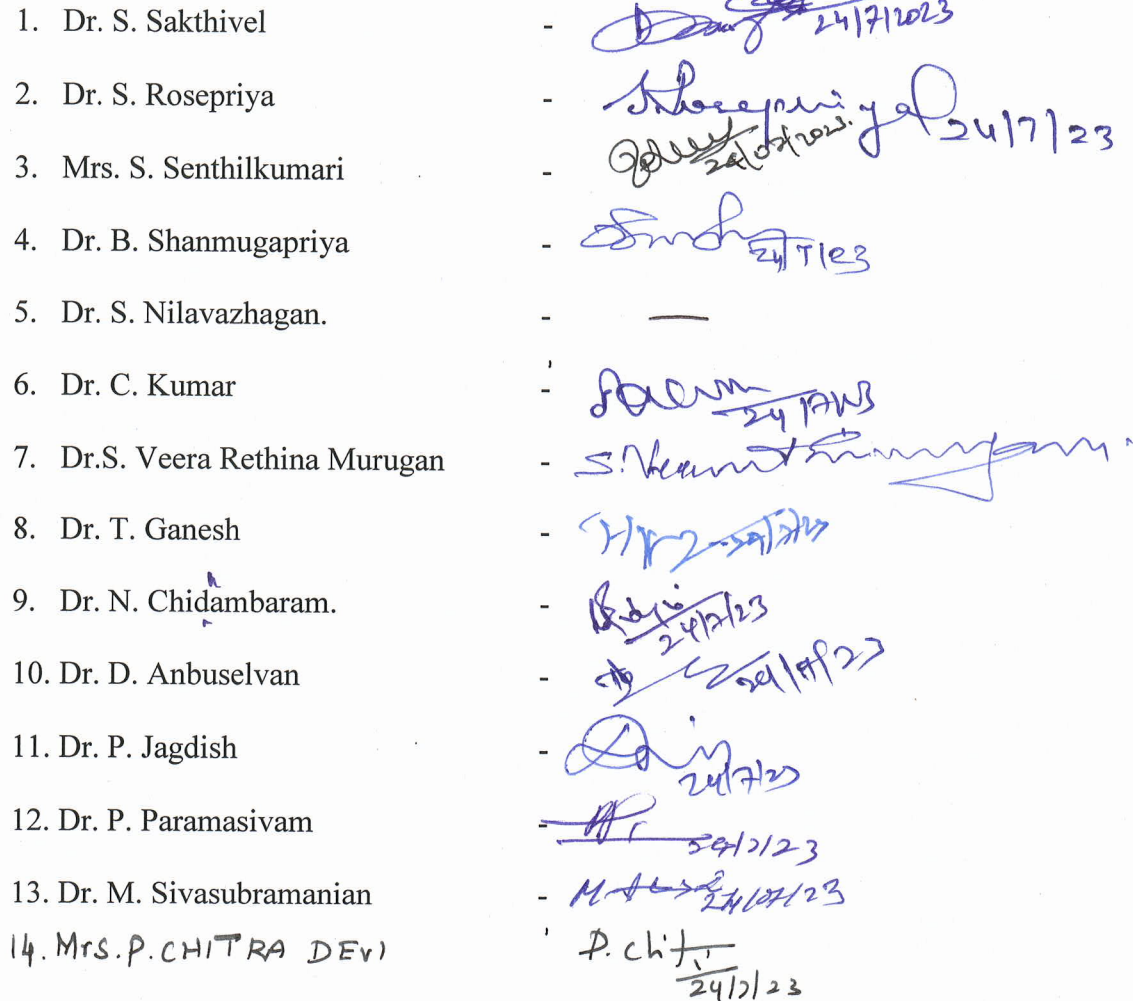 1. Dr. S. Sakthivel - 24/7/2023
2. Dr. S. Rosepriya - S. Rosepriya 24/7/23
3. Mrs. S. Senthilkumari - 24/07/2023.
4. Dr. B. Shanmugapriya - 24/7/23
5. Dr. S. Nilavazhagan. - —
6. Dr. C. Kumar - 24/7/23
7. Dr.S. Veera Rethina Murugan -
8. Dr. T. Ganesh - 24/7/23
9. Dr. N. Chidambaram. - 24/7/23
10. Dr. D. Anbuselvan - 24/7/23
11. Dr. P. Jagdish - 24/7/23
12. Dr. P. Paramasivam - 24/7/23
13. Dr. M. Sivasubramanian - 24/07/23
14. Mrs. P. CHITRA DEVI P. Chit 24/7/23